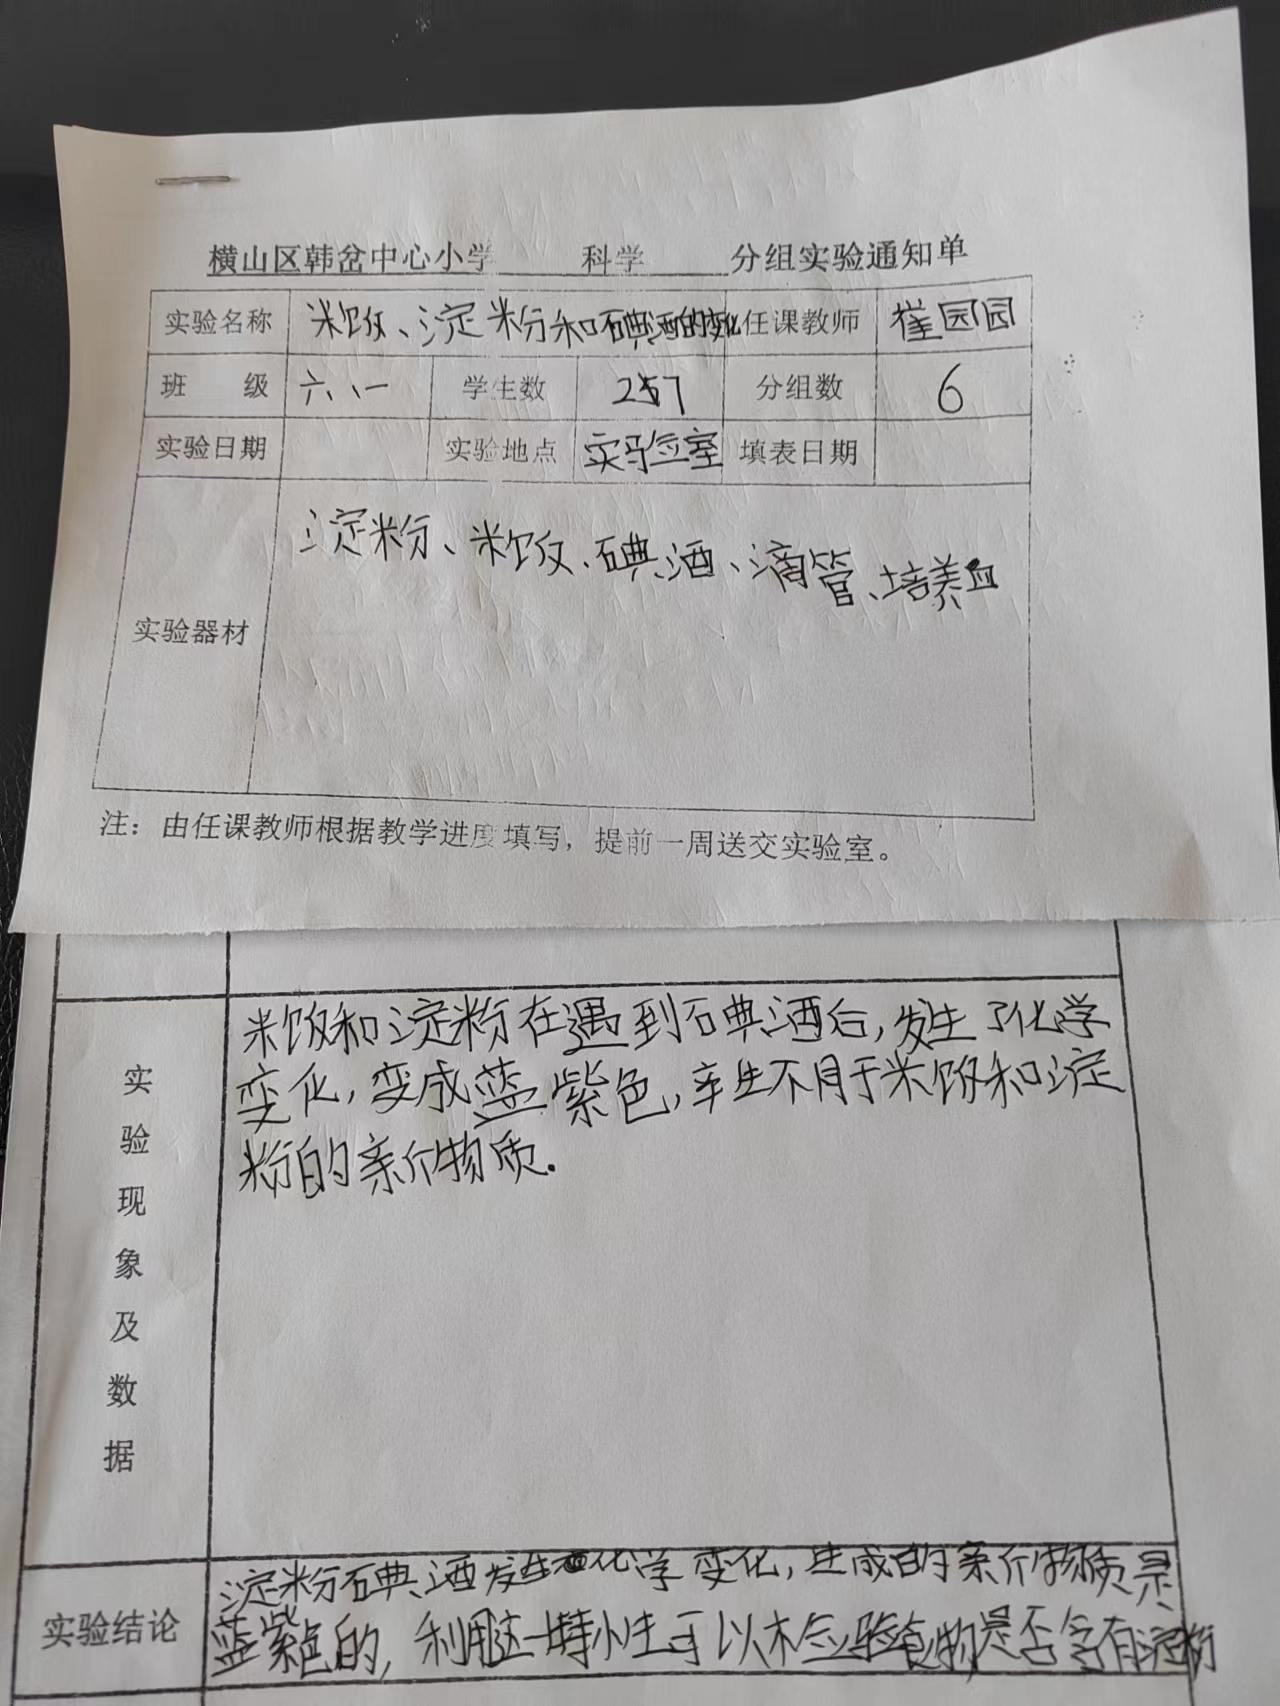 横山区韩岔中心小学 科学 分组实验通知单
实验名称 米饭、淀粉和碘酒的变化 任课教师 崔园园
班 级 六、一 学生数 257 分组数 6
实验日期 实验地点 实验室 填表日期
淀粉、米饭、碘酒、滴管、培养皿
实验器材
注：由任课教师根据教学进度填写，提前一周送交实验室。
米饭和淀粉在遇到碘酒后，发生了化学
变化，变成蓝紫色，产生不同于米饭和淀
粉的新的物质.
实验现象及数据
淀粉碘酒发生化学变化，生成的新的物质是
实验结论
蓝紫色的，利用这一特性可以检验食物是否含有淀粉